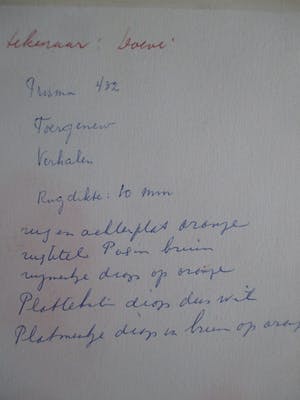 tekenaar: Doeve
Prisma 432
Toergenew
Verhalen
Rugdikte: 10 mm
rug en achterplat oranje
rugtitel in bruin
rugmerkje diap op oranje
Plattekst diap dus wit
Platmerkje diap in bruin op oranje